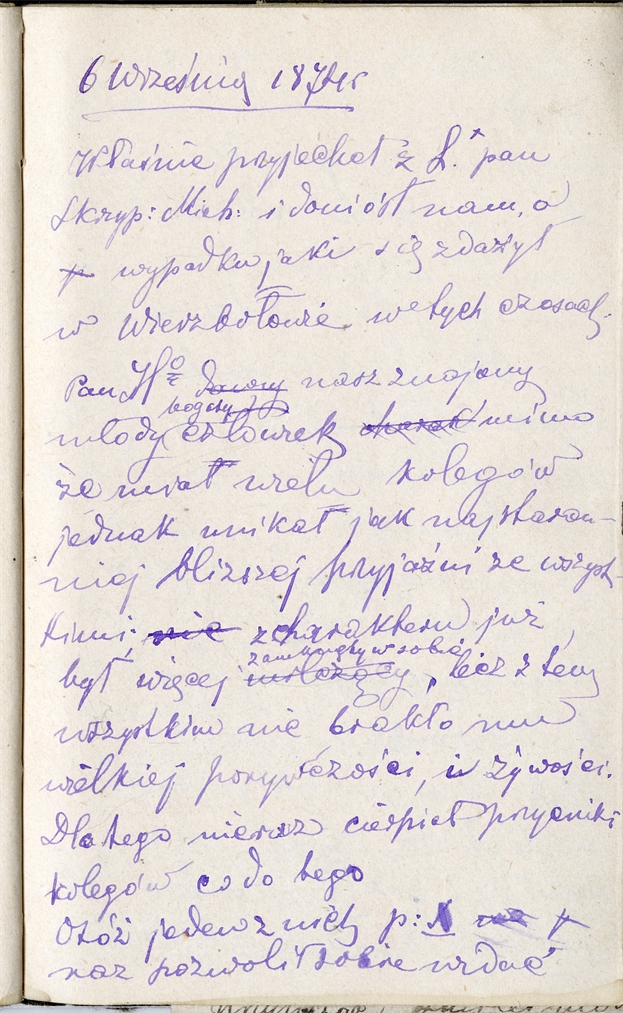 6 Września 187
Właśnie przyjechał z L. pan
Skryp: Mich: i doniósł nam, o
wypadku jaki się zdażył
w Wierzbołowie w tych czasach.
Pan nasz znajomy
bogaty
młody człowiek mimo
że miał wielu kolegów
jednak unikał jak najstaran-
niej bliższej przyjaźni ze wszyst-
kimi; nie z charakteru już
zamknięty w sobie
był więcej milczący, lecz z tem
wszystkim nie brakło mu
wielkiej porywczości, i żywości.
Dlatego nieraz cierpiał przycinki
kolegów co do tego
Otóż jeden z nich p: N na
raz pozwolił sobie wydać